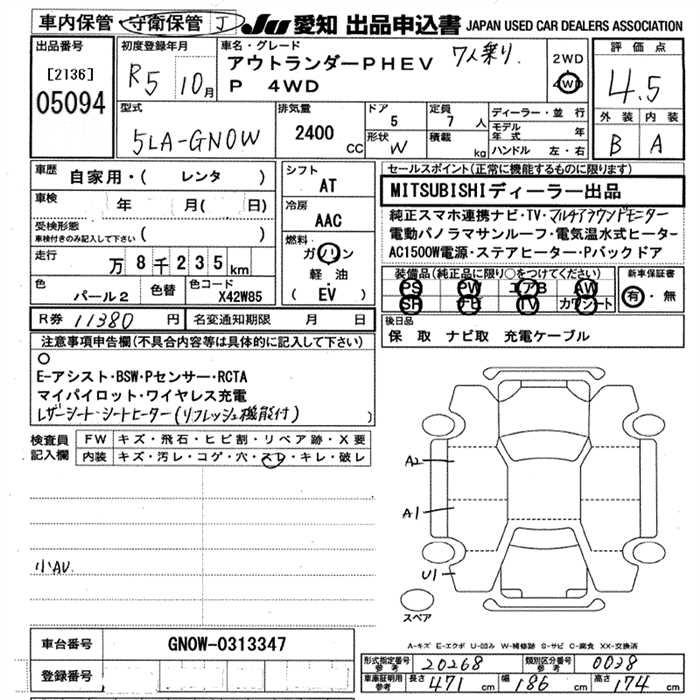 車内保管 守衛保管 J JU 愛知 出品申込書 JAPAN USED CAR DEALERS ASSOCIATION
出品番号
[2136]
05094
初度登録年月
R5 10月
車名・グレード
アウトランダーPHEV 7人乗り
P 4WD
2WD
4WD
評価点
4.5
外装 内装
B A
型式
5LA-GN0W
排気量
2400 CC
ドア
5
定員
7 人
形状
W
積載
kg
ディーラー・並行
モデル年式 年
ハンドル 左・右
車歴
自家用・( レンタ )
車検
年 月( 日)
受検形態
車検付きのみ記入して下さい ( )
走行
万8千235km
色
パール2
色替
色コード
X42W85
シフト
AT
冷房
AAC
燃料
ガソリン
軽・油
( EV )
セールスポイント(正常に機能するものに限ります)
MITSUBISHIディーラー出品
純正スマホ連携ナビ・TV・マルチアラウンドモニター
電動パノラマサンルーフ・電気温水式ヒーター
AC1500W電源・ステアヒーター・Pバックドア
装備品(純正品に限り○をつけてください)
PS PW エアB AW
SR TV カワシート
新車保証書
有・無
R券 11380 円 名変通知期限 月 日
後日品
保 取 ナビ取 充電ケーブル
注意事項申告欄(不具合内容等は具体的に記入して下さい)
○
E-アシスト・BSW・Pセンサー・RCTA
マイパイロット・ワイヤレス充電
レザーシート・シートヒーター(リフレッシュ機能付)
検査員記入欄
FW キズ・飛石・ヒビ割・リペア跡・X要
内装 キズ・汚レ・コゲ・穴・スレ・キレ・破レ
小AU
A2
A1
U1
スペア
A-キズ E-エクボ U-凹み W-補修跡 S-サビ C-腐食 XX-交換済
車台番号 GN0W-0313347
登録番号
形式指定番号 参考 20268 類別区分番号 参考 0028
車庫証明用 参考 長さ 471 cm 幅 186 cm 高さ 174 cm